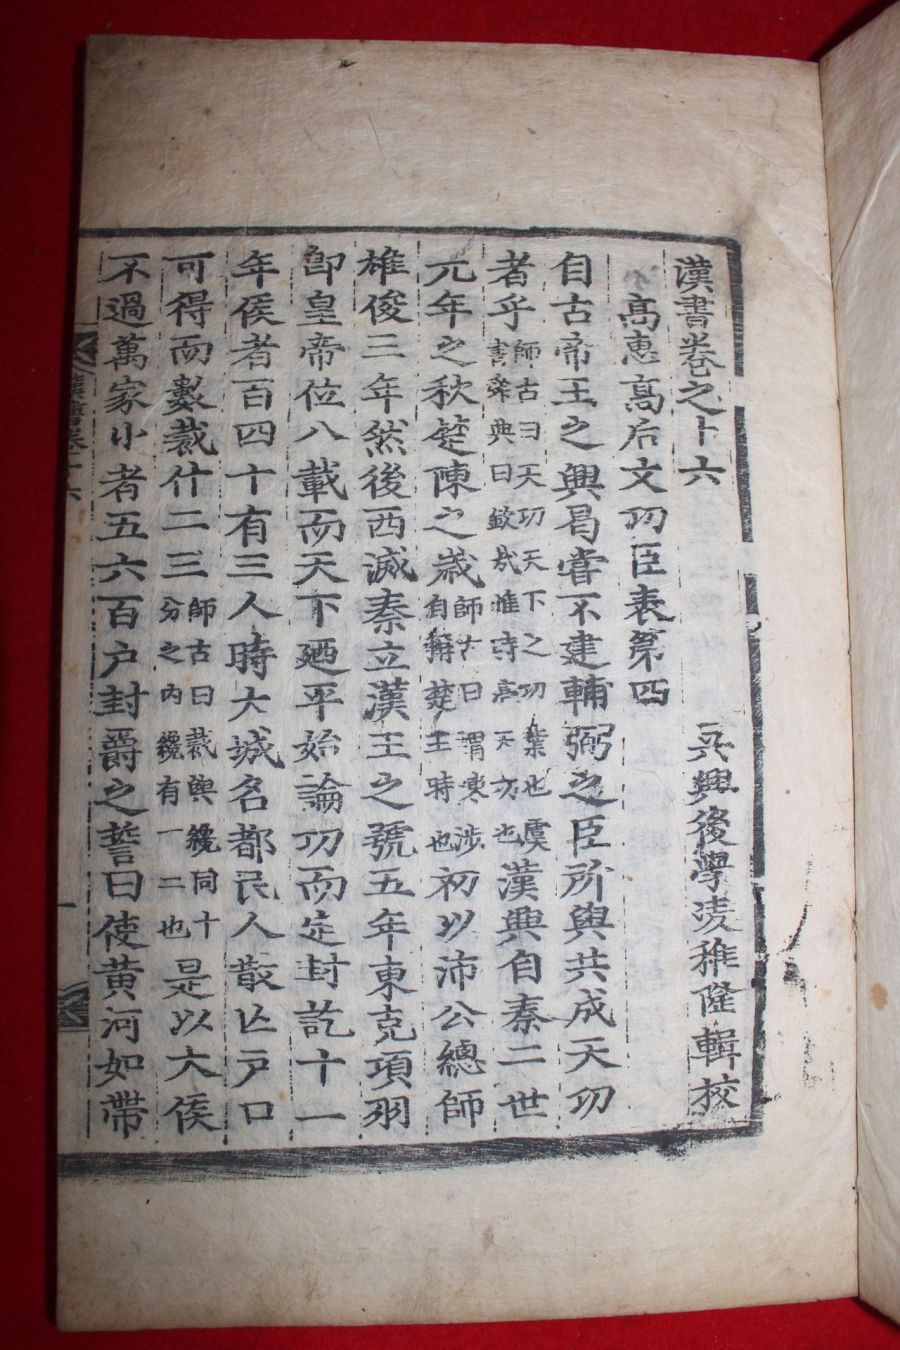 漢書卷之十六
吳興後學凌稚隆輯校
高惠高后文功臣表第四
自古帝王之興曷嘗不建輔弼之臣所與共成天功
者乎師古曰天功天下之功業也虞書舜典曰欽哉惟時亮天功也漢興自秦二世
元年之秋楚陳之歲師古曰謂陳涉自稱楚王時也初以沛公總帥
雄俊三年然後西滅秦立漢王之號五年東克項羽
卽皇帝位八載而天下廼平始論功而定封訖十一
年侯者百四十有三人時大城名都民人散亡戶口
可得而數裁什二三師古曰裁與纔同十分之內纔有一二也是以大侯
不過萬家小者五六百戶封爵之誓曰使黃河如帶
漢書卷十六